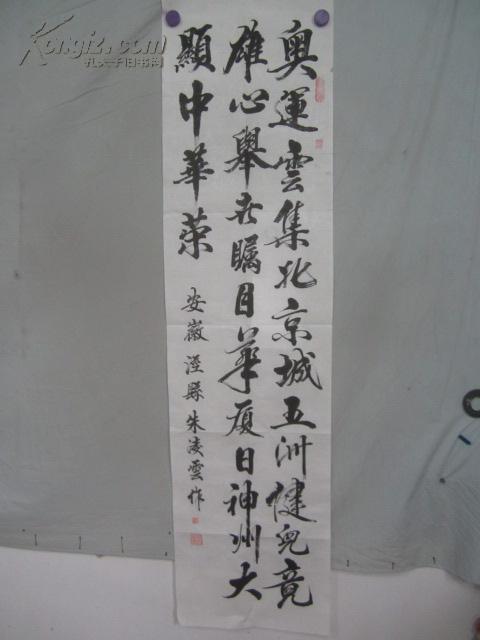 奧運雲集北京城五洲健兒竟
雄心舉世矚目華廈日神州大
顯中華榮
安徽涇縣朱凌雲作
Kongfz.com
孔夫子旧书网